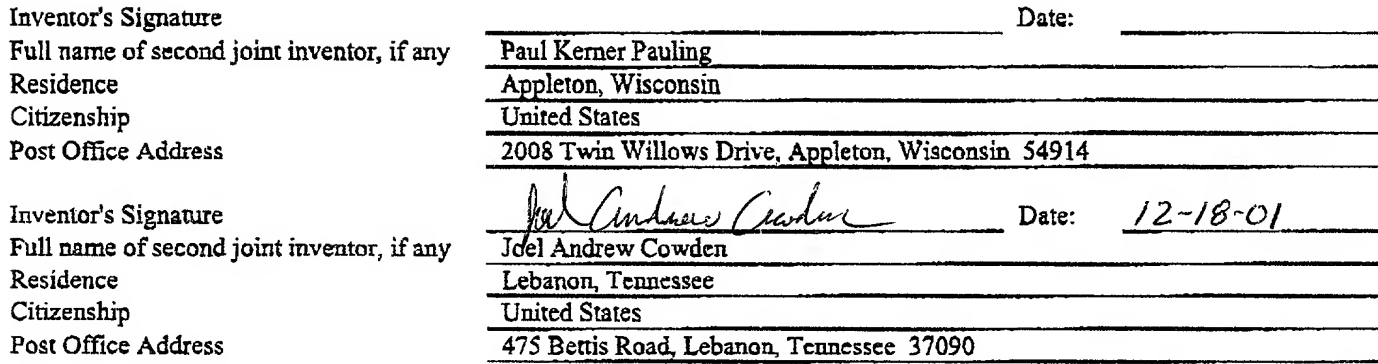 Inventor's Signature Date:
Full name of second joint inventor, if any Paul Kerner Pauling
Residence Appleton, Wisconsin
Citizenship United States
Post Office Address 2008 Twin Willows Drive, Appleton, Wisconsin 54914
Inventor's Signature Joel Andrew Cowden Date: 12-18-01
Full name of second joint inventor, if any Joel Andrew Cowden
Residence Lebanon, Tennessee
Citizenship United States
Post Office Address 475 Bettis Road, Lebanon, Tennessee 37090